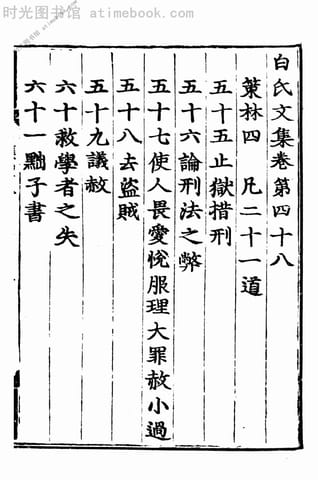 时光图书馆 - atimebook.com
白氏文集卷第四十八
策林四 凡二十一道
五十五止獄措刑
五十六論刑法之弊
五十七使人畏愛悅服理大罪赦小過
五十八去盜賊
五十九議赦
六十救學者之失
六十一黜子書